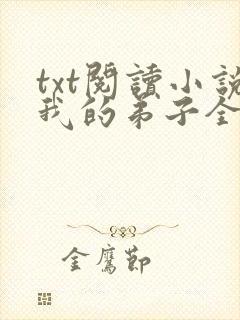 txt閱讀小說
我的弟子全
金鷹節